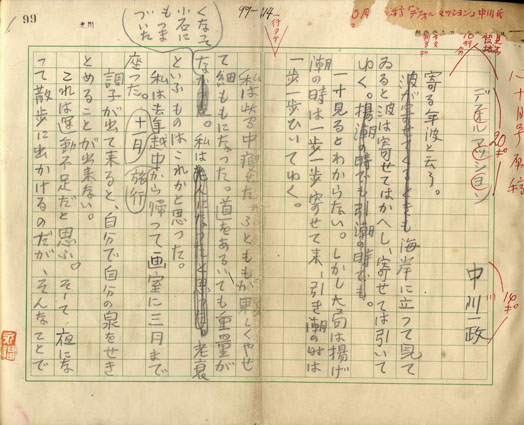 99
99-114
十月号原稿
デフォルマッション
中川一政
寄る年波と云う。
波が寄せてくるときも海岸に立つて見て
ゐると波は寄せてはかへし、寄せては引いて
ゆく。揚潮の時でも引潮の時でも。
一寸見るとわからない。しかし大旨は揚げ
潮の時は一歩一歩寄せて来、引き潮の時は
一歩一歩ひいてゆく。
私は 中痩せた。ふとももが しくやせ
て細ももになった。道をあるいても重量が
くなって
小石に
もつま
づいた
なかった。私は老人になったと思った。老衰
といふものはこれかと思った。
私は去年越中から帰って画室に三月まで
座った。(十一月 旅行)
調子が出て来ると、自分で自分の泉をせき
とめることが出来ない。
これは運動不足だと思ふ。そして夜にな
って散歩に出かけるのだが、そんなことで